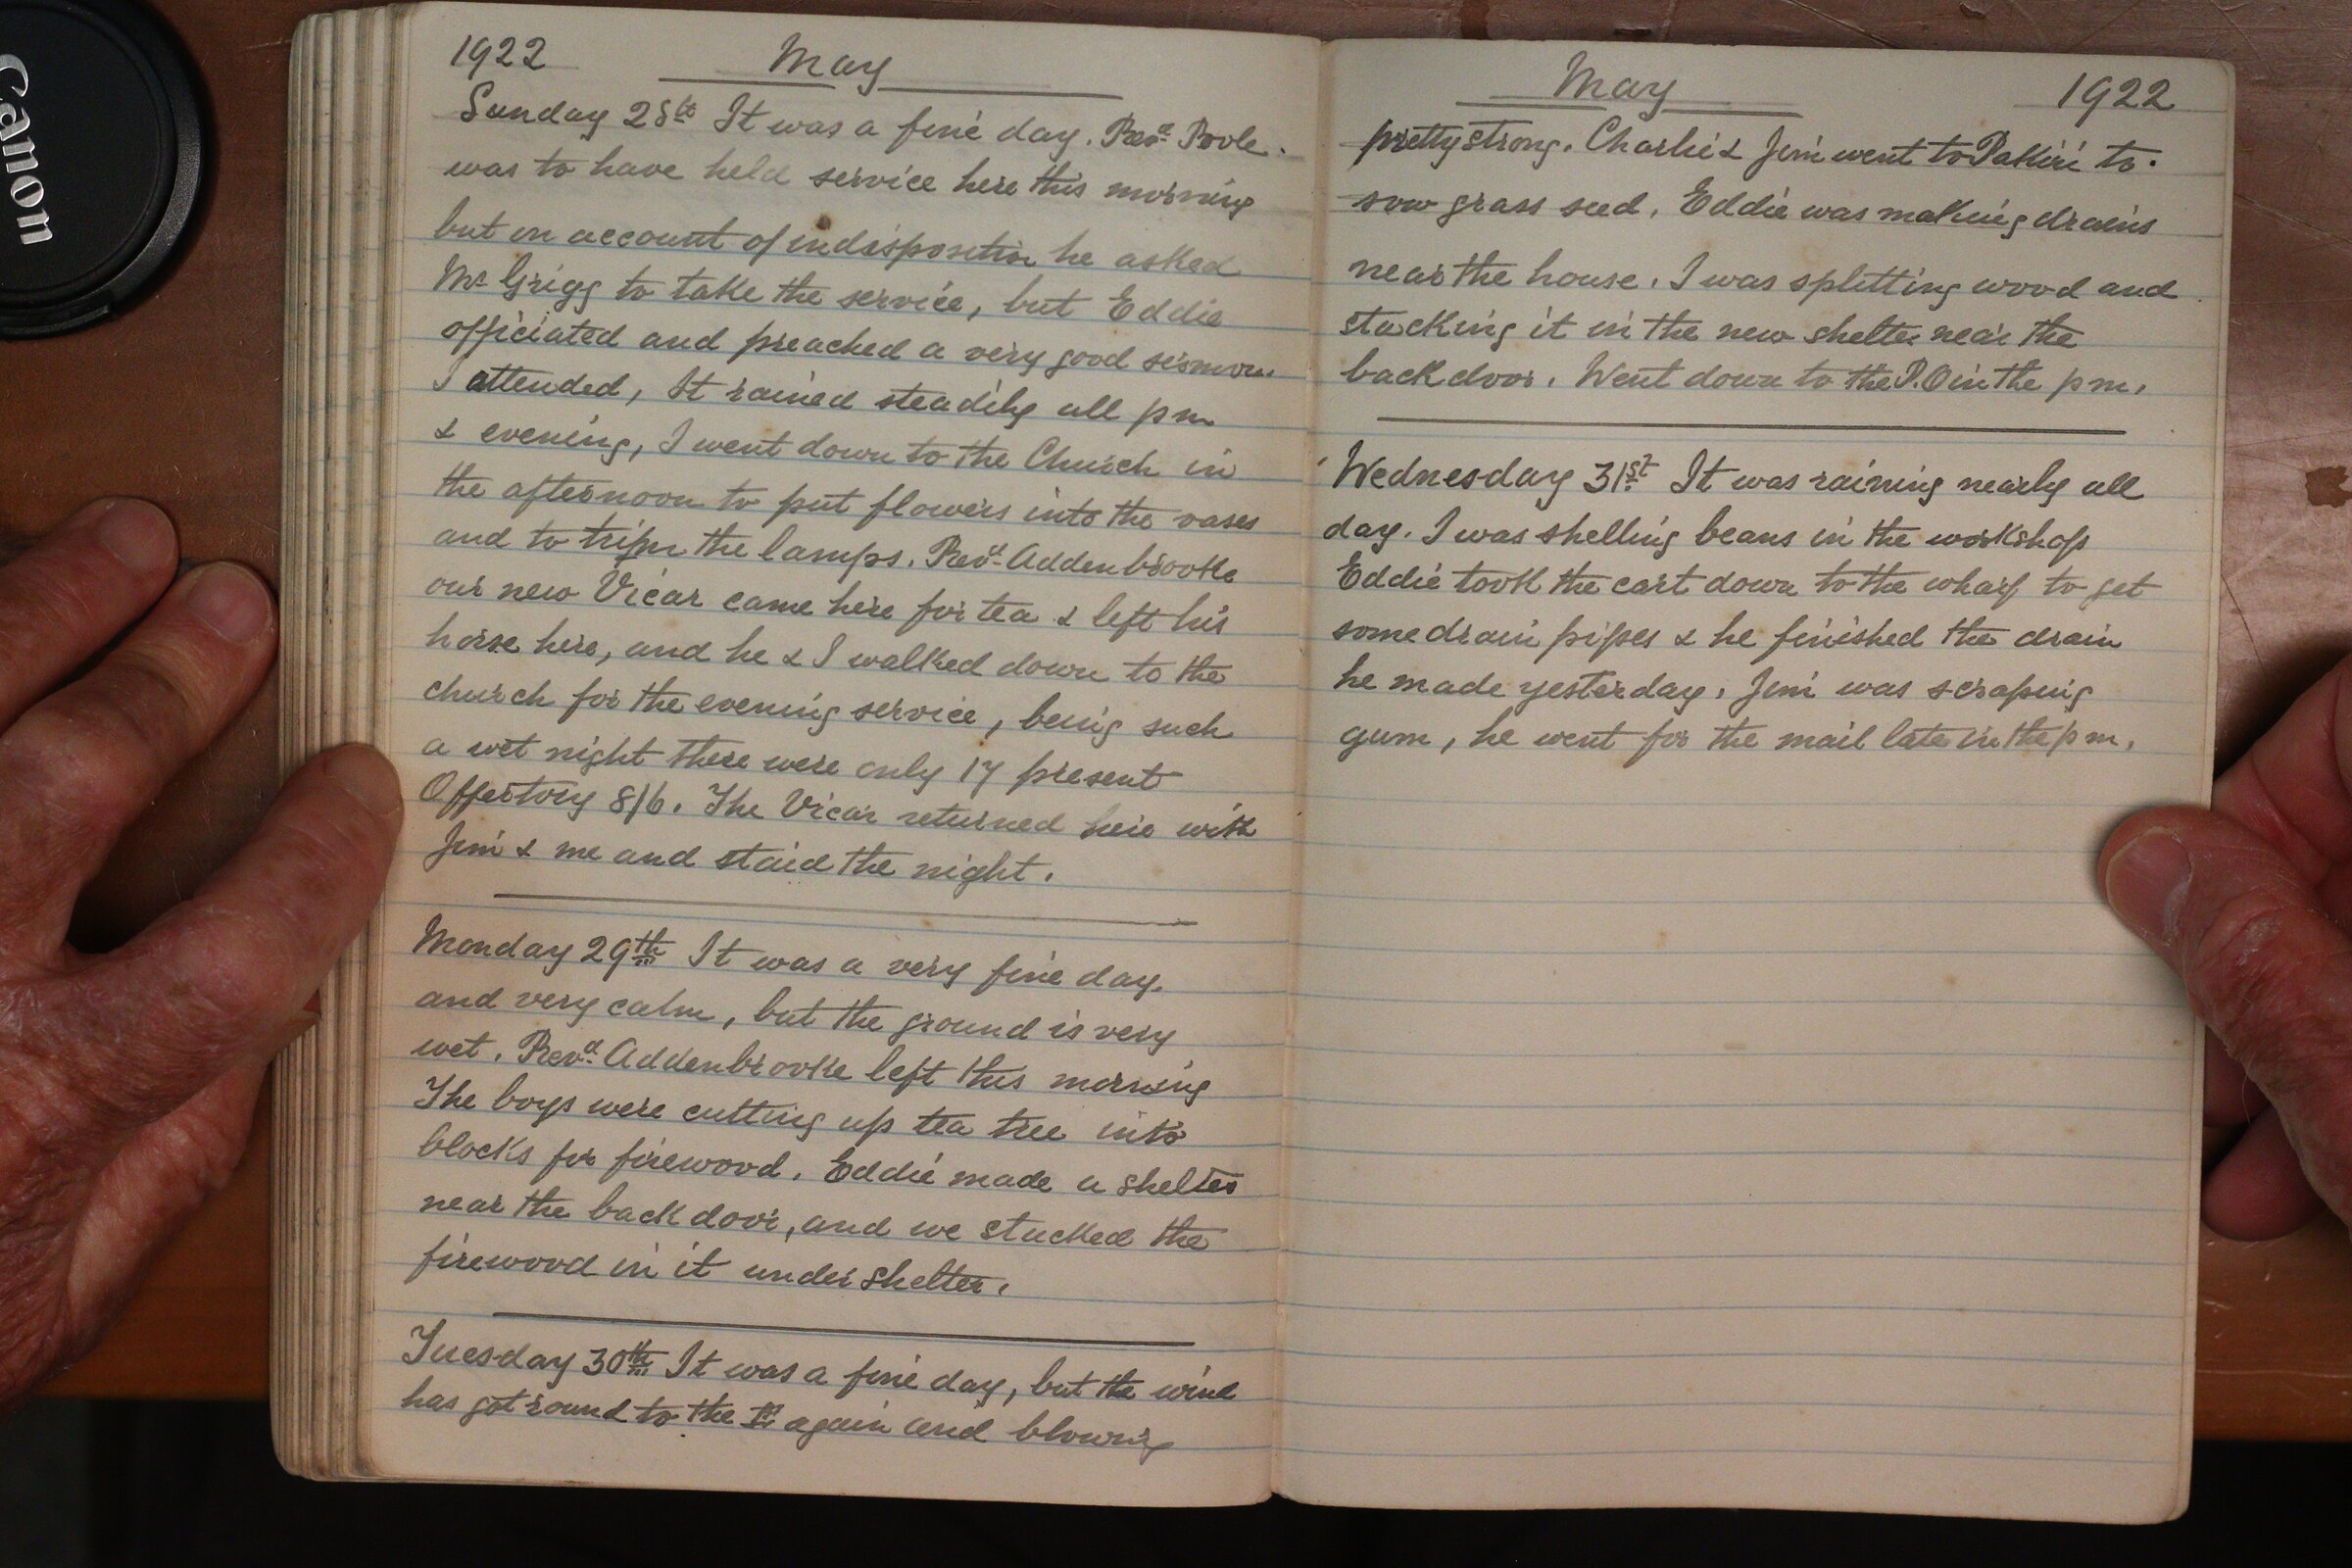 Canon
1922 May
Sunday 28th It was a fine day. Revd Poole.
was to have held service here this morning
but on account of indisposition he asked
Mr Grigg to take the service, but Eddie
officiated and preached a very good sermon.
I attended, It rained steadily all pm
& evening, I went down to the Church in
the afternoon to put flowers into the vases
and to trim the lamps. Revd Addenbrooke
our new Vicar came here for tea & left his
horse here, and he & I walked down to the
church for the evening service, being such
a wet night there were only 17 present
Offertory 8/6. The Vicar returned here with
Jim & me and staid the night.
Monday 29th It was a very fine day.
and very calm, but the ground is very
wet. Revd Addenbrooke left this morning
The boys were cutting up tea tree into
blocks for firewood. Eddie made a shelter
near the back door, and we stacked the
firewood in it under shelter.
Tuesday 30th It was a fine day, but the wind
has got round to the again and blowing
May 1922
pretty strong. Charlie & Jim went to Pakiri to.
sow grass seed. Eddie was making drains
near the house. I was splitting wood and
stacking it in the new shelter near the
back door. Went down to the P.O in the pm.
Wednesday 31st It was raining nearly all
day. I was shelling beans in the workshop
Eddie took the cart down to the wharf to get
some drain pipes & he finished the drain
he made yesterday. Jim was scraping
gum, he went for the mail late in the pm.